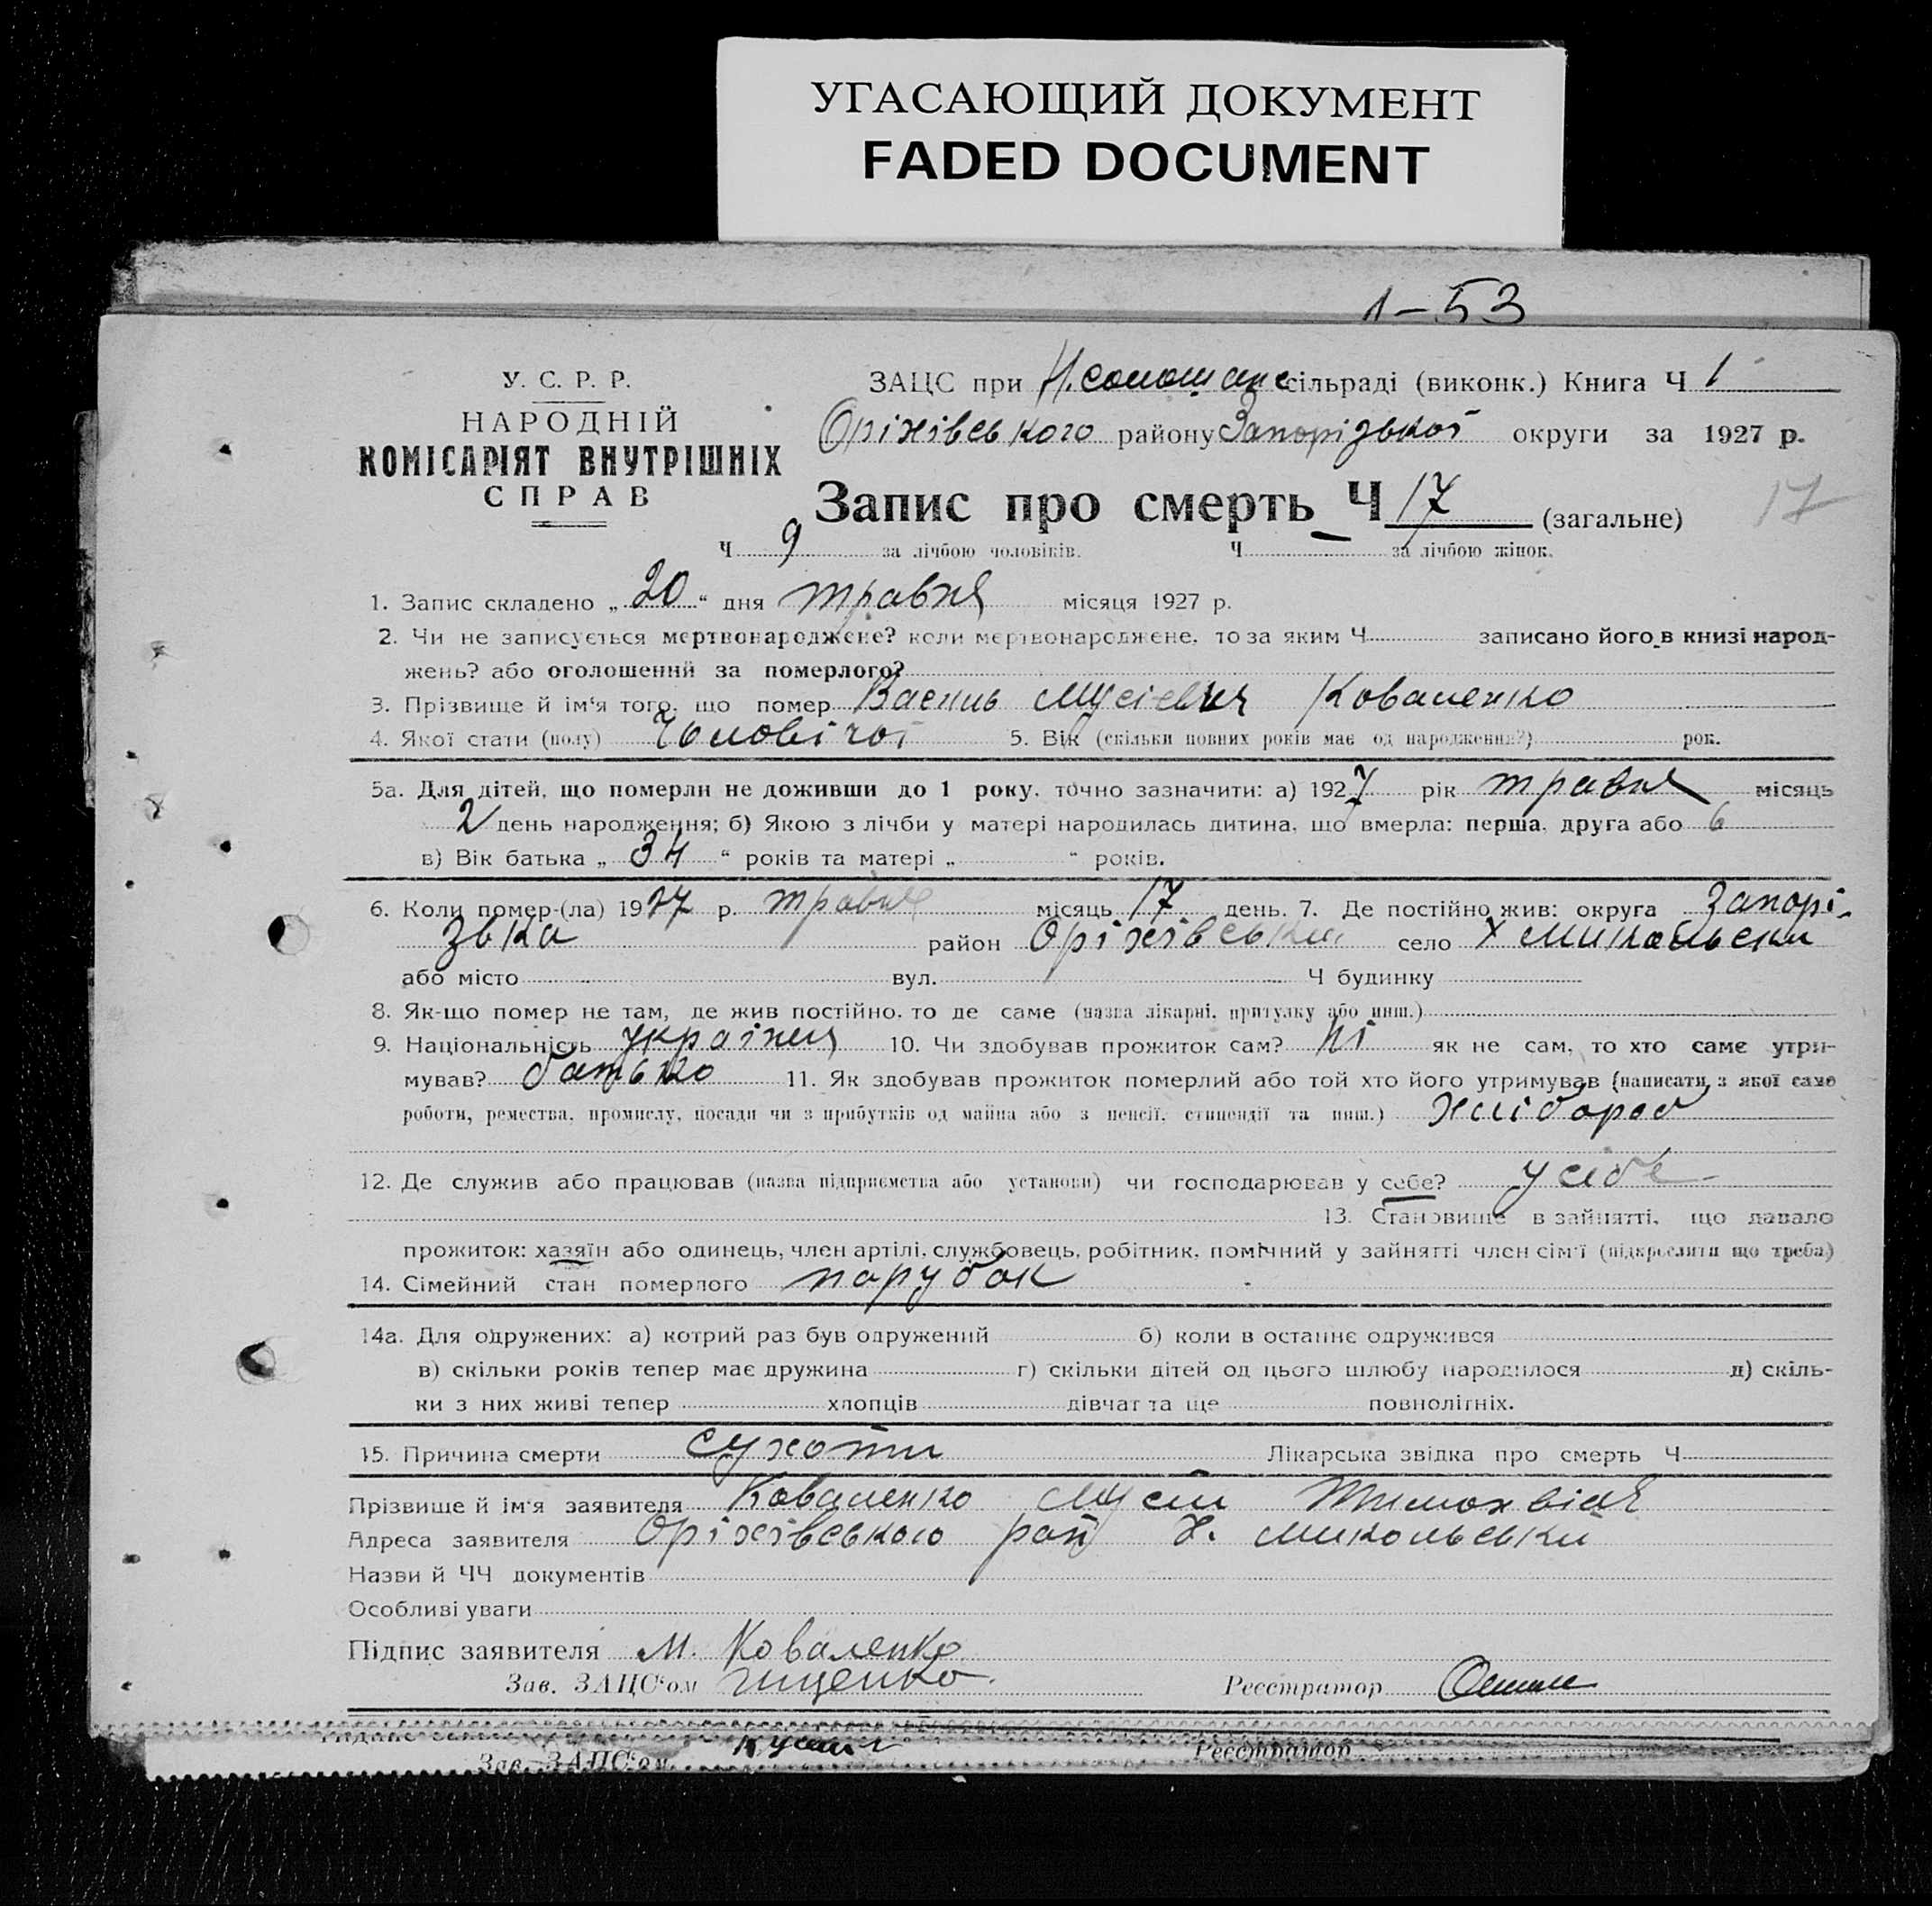 УГАСАЮЩИЙ ДОКУМЕНТ
FADED DOCUMENT
1-53
У. С. Р. Р.
НАРОДНІЙ
КОМІСАРІЯТ ВНУТРІШНІХ
СПРАВ
ЗАЦС при сільраді (виконк.) Книга Ч 1
Оріхівського району Запорізької округи за 1927 р.
Запис про смерть Ч 17 (загальне)
17
Ч 9 за лічбою чоловіків. Ч за лічбою жінок.
1. Запис складено „ 20 “ дня травня місяця 1927 р.
2. Чи не записується мертвонароджене? коли мертвонароджене, то за яким Ч записано його в книзі народ-
жень? або оголошений за померлого?
3. Прізвище й ім'я того, що помер Василь Мусієвич Коваленко
4. Якої стати (полу) Чоловічої 5. Вік (скільки повних років має од народження?) рок.
5а. Для дітей, що померли не доживши до 1 року, точно зазначити: а) 1927 рік травня місяць
2 день народження; б) Якою з лічби у матері народилась дитина, що вмерла: перша, друга або 6
в) Вік батька „ 34 “ років та матері „ “ років.
6. Коли помер-(ла) 1927 р. травня місяць 17 день. 7. Де постійно жив: округа Запорі-
зька район Оріхівський село Х Микольськи
або місто вул. Ч будинку
8. Як-що помер не там, де жив постійно, то де саме (назва лікарні, притулку або инш.)
9. Національність українця 10. Чи здобував прожиток сам? ні як не сам, то хто саме утри-
мував? батько 11. Як здобував прожиток померлий або той хто його утримував (написати з якої саме
роботи, ремества, промислу, посади чи з прибутків од майна або з пенсії, стипендії та инш.) хлібороб
12. Де служив або працював (назва підприємства або установи) чи господарював у себе? у сібе
13. Становище в зайнятті, що давало
прожиток: хазяїн або одинець, член артілі, службовець, робітник, помічний у зайнятті член сім'ї (підкреслити що треба)
14. Сімейний стан померлого парубок
14а. Для одружених: а) котрий раз був одружений б) коли в останнє одружився
в) скільки років тепер має дружина г) скільки дітей од цього шлюбу народилося д) скіль-
ки з них живі тепер хлопців дівчат та ще повнолітніх.
15. Причина смерти сухоти Лікарська звідка про смерть Ч
Прізвище й ім'я заявителя Коваленко Мусій Тимохвіев
Адреса заявителя Оріхівського рай Х. Микольський
Назви й ЧЧ документів
Особливі уваги
Підпис заявителя М. Коваленко
Зав. ЗАЦС'ом Гищенко Реєстратор
Зав. ЗАЦС'ом Реєстратор